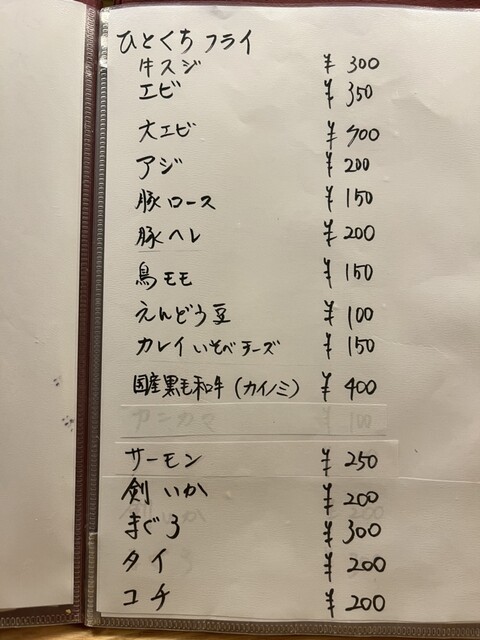 ひとくちフライ
牛スジ ¥300
エビ ¥350
大エビ ¥700
アジ ¥200
豚ロース ¥150
豚ヘレ ¥200
鳥モモ ¥150
えんどう豆 ¥100
カレイいそべチーズ ¥150
国産黒毛和牛(カイノミ) ¥400
¥100
サーモン ¥250
剣いか ¥200
まぐろ ¥300
タイ ¥200
コチ ¥200